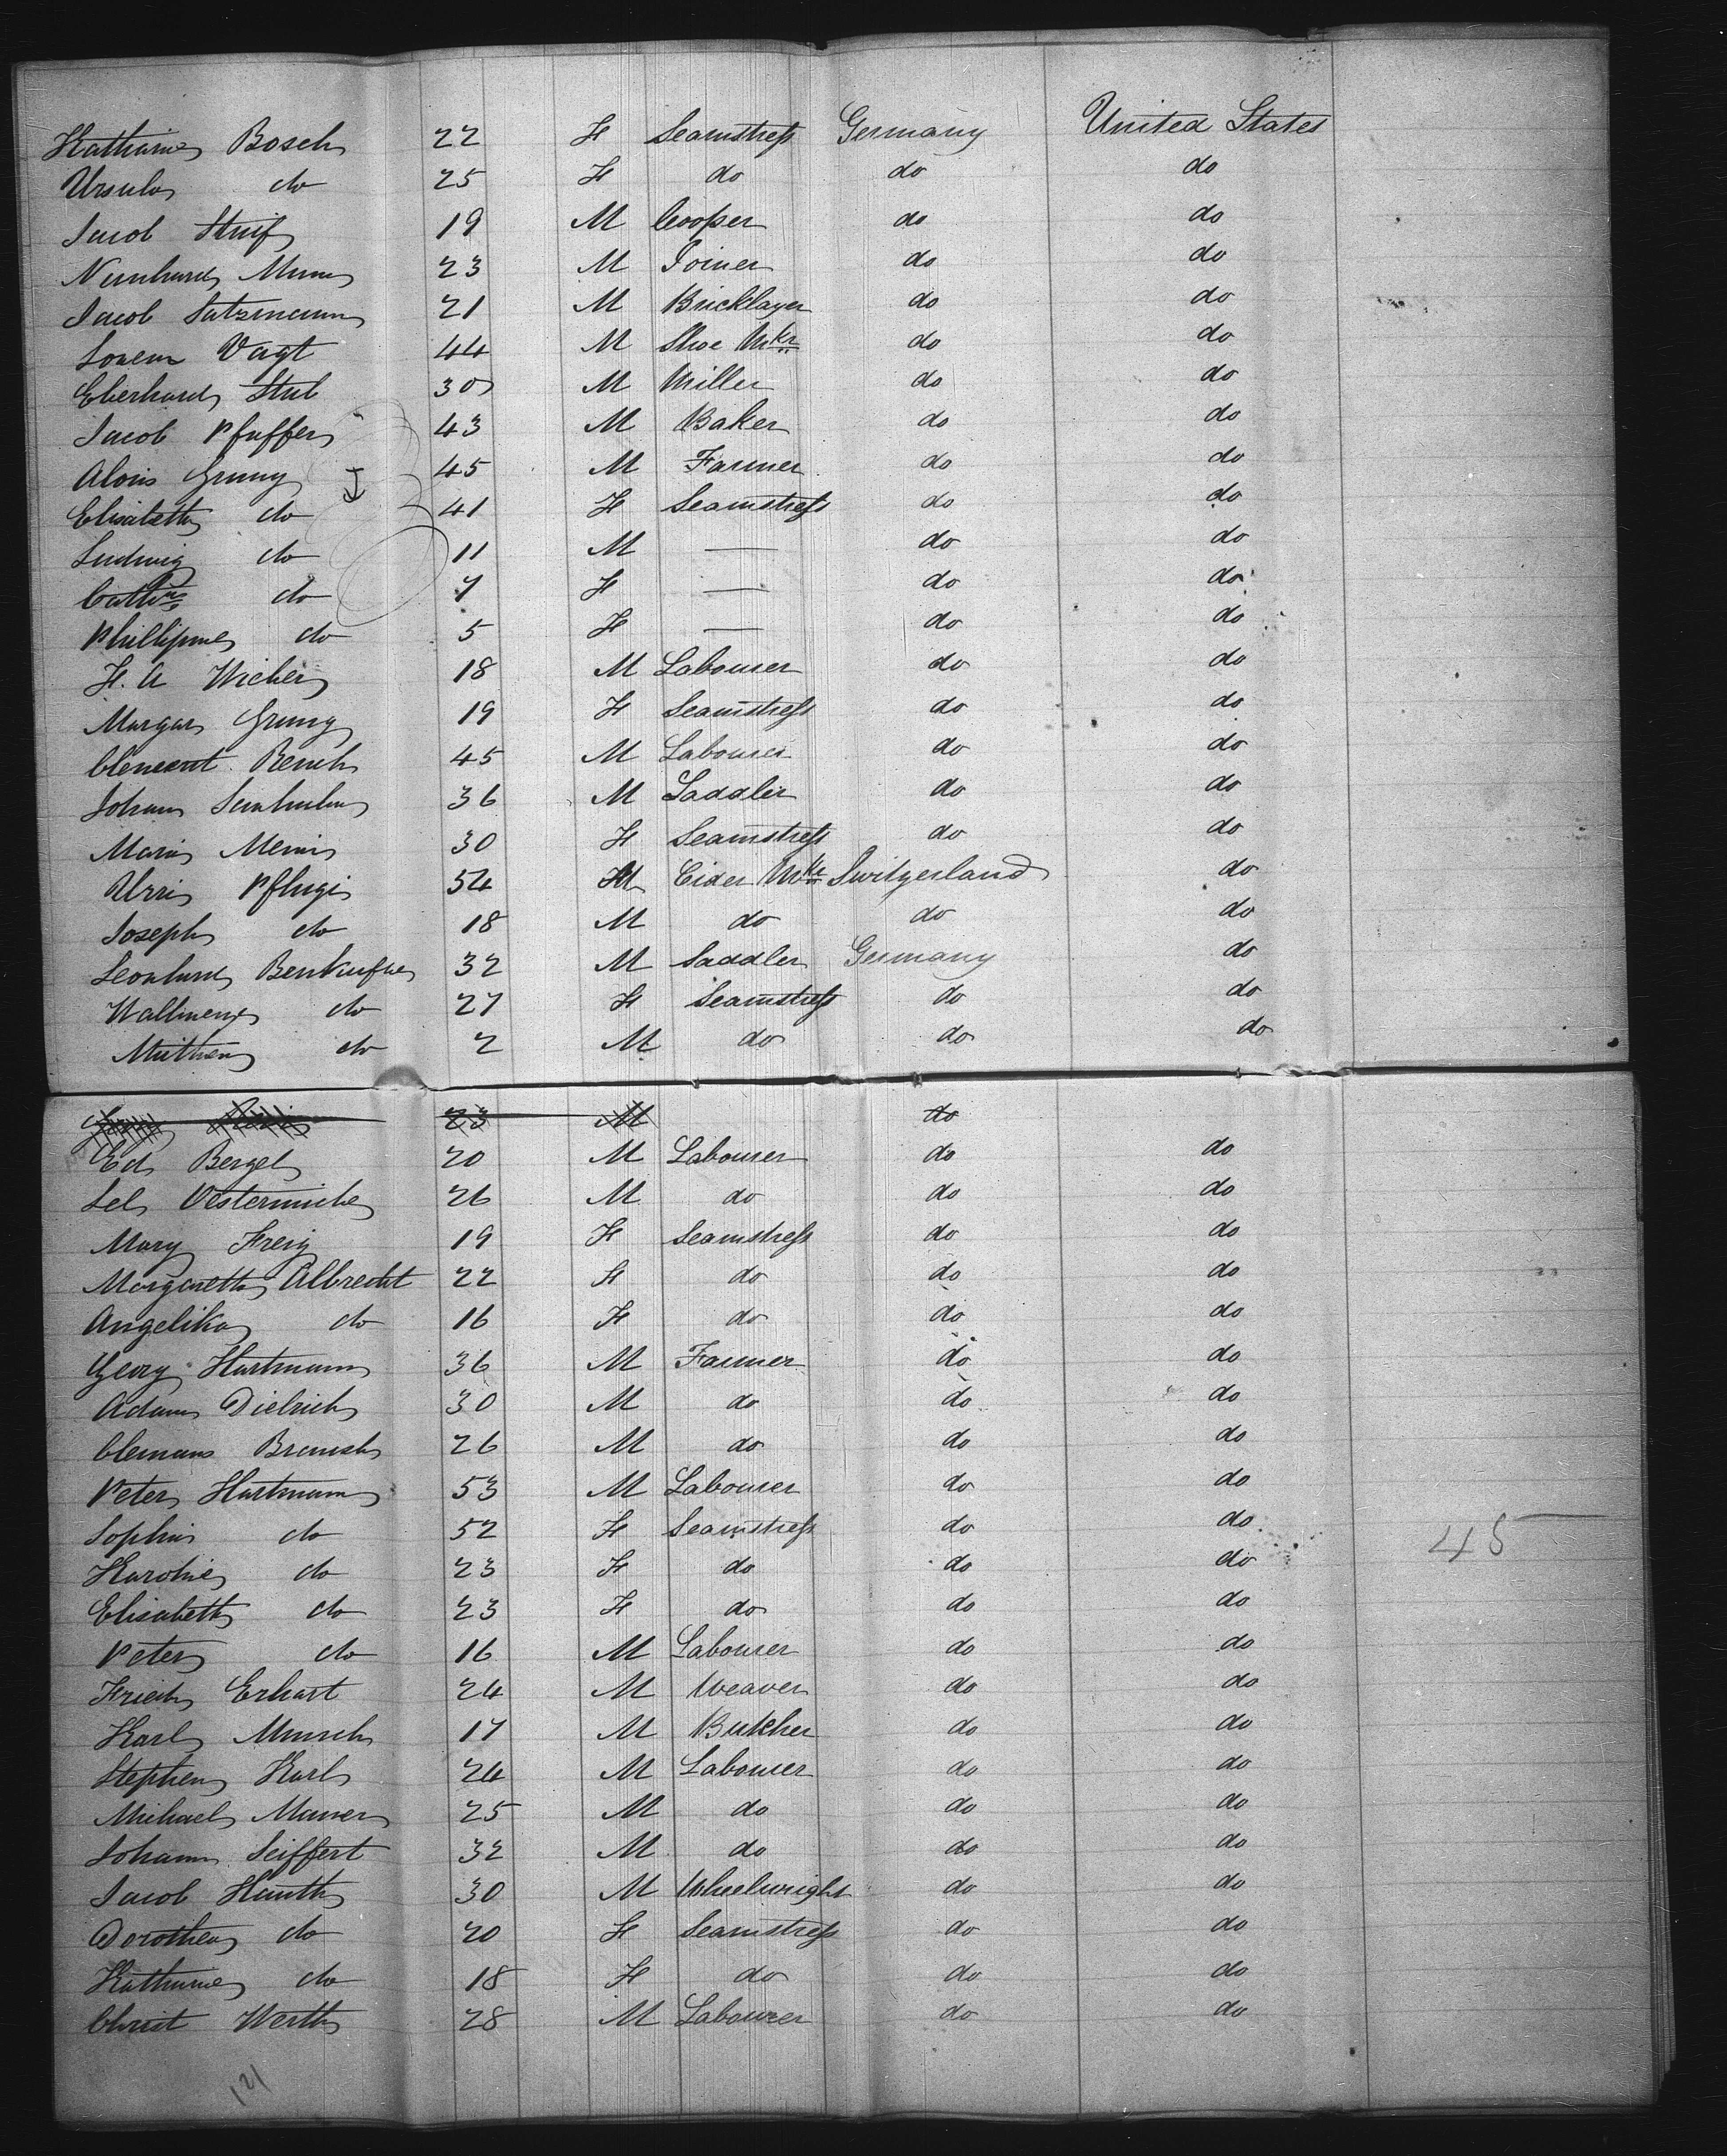 Katharine Bosch 22 F Seamstress Germany United States
Ursula do 25 F do do do
Jacob 19 M Cooper do do
23 M Joiner do do
Jacob Satzmann 21 M Bricklayer do do
Vagt 44 M Shoe Mkr do do
Eberhard Stub 30 M Miller do do
Jacob Pfuffer 43 M Baker do do
Alois Grung 45 M Farmer do do
Elisabeth do 41 F Seamstress do do
Ludwig do 11 M — do do
Cathne do 7 F — do do
Phillipine do 5 F — do do
F. A Wicher 18 M Labourer do do
Margar Grung 19 F Seamstress do do
Clement 45 M Labourer do do
Johann 36 M Saddler do do
Maria 30 F Seamstress do do
Pflugi 54 M Cider Mkr Switzerland do
Joseph do 18 M do do do
Leonhard 32 M Saddler Germany do
do 27 F Seamstress do do
do 2 M do do do
23 M do
Ed Bergel 20 M Labourer do do
26 M do do do
Mary Freig 19 F Seamstress do do
Margaretth Albrecht 22 F do do do
Angelika do 16 F do do do
Georg Hartmann 36 M Farmer do do
Adam Dietrich 30 M do do do
Clemans 26 M do do do
Peter Hartmann 53 M Labourer do do
Sophia do 52 F Seamstress do do
Karoline do 23 F do do do
Elisabeth do 23 F do do do
45
Peter do 16 M Labourer do do
Friedr Erhart 24 M Weaver do do
Karl Munsch 17 M Butcher do do
Stephen Karl 24 M Labourer do do
Michael Maurer 25 M do do do
Johann Seiffert 32 M do do do
Jacob Hauth 30 M Wheelwright do do
Dorothea do 20 F Seamstress do do
Katharine do 18 F do do do
Christ Werth 28 M Labourer do do
121